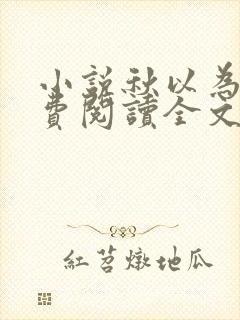 小說秋以為
費閱讀全文
紅苕燉地瓜